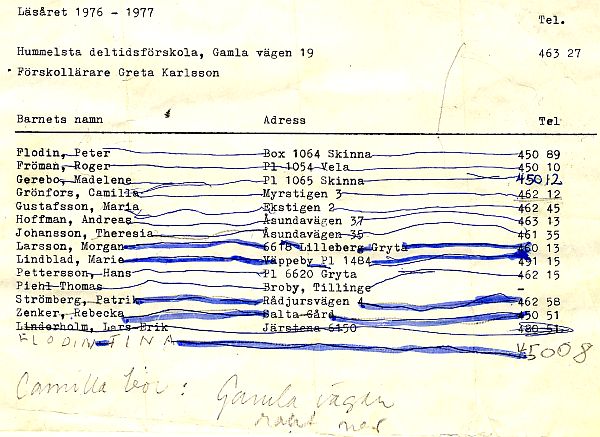 Läsåret 1976 - 1977
Tel.
Hummelsta deltidsförskola, Gamla vägen 19 463 27
Förskollärare Greta Karlsson
Barnets namn Adress Tel
Flodin, Peter Box 1064 Skinna 450 89
Fröman, Roger Pl 1054 Vela 450 10
Gerebo, Madelene Pl 1065 Skinna 450 12
Grönfors, Camilla Myrstigen 3 462 12
Gustafsson, Maria Ekstigen 2 462 45
Hoffman, Andreas Åsundavägen 37 463 13
Johansson, Theresia Åsundavägen 35 461 35
Larsson, Morgan 6618 Lilleberg Gryta 460 13
Lindblad, Marie Väppeby Pl 1484 491 15
Pettersson, Hans Pl 6620 Gryta 462 15
Piehl Thomas Broby, Tillinge -
Strömberg, Patrik Rådjursvägen 4 462 58
Zenker, Rebecka Salta Gård 450 51
Linderholm, Lars-Erik Järstena 6150 480 51
FLODIN TINA 45008
Camilla bor: Gamla vägen
rakt